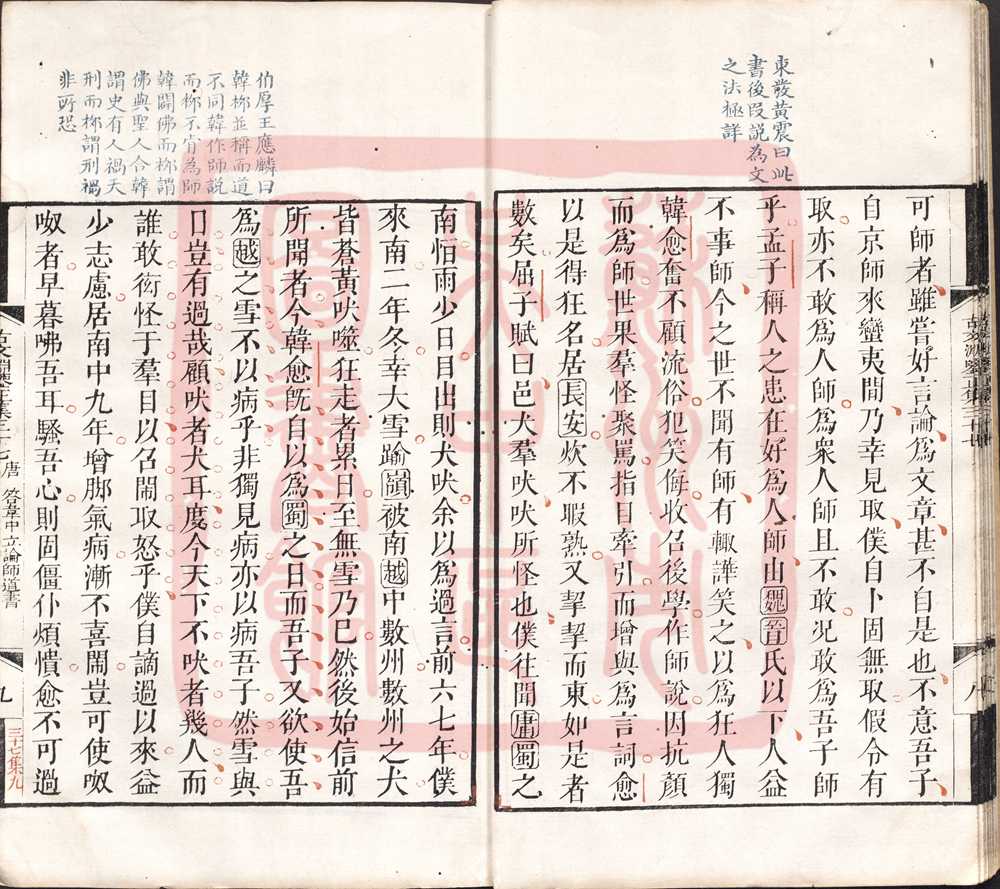 東發黃震曰此
書後段說為文
之法極詳
可師者雖嘗好言論爲文章甚不自是也不意吾子
自京師來蠻夷間乃幸見取僕自卜固無取假令有
取亦不敢爲人師爲衆人師且不敢况敢爲吾子師
乎孟子稱人之患在好爲人師由魏晉氏以下人益
不事師今之世不聞有師有輒譁笑之以爲狂人獨
韓愈奮不顧流俗犯笑侮收召後學作師說因抗顏
而爲師世果羣怪聚罵指目牽引而增與爲言詞愈
以是得狂名居長安炊不暇熟又挈挈而東如是者
數矣屈子賦曰邑犬羣吠吠所怪也僕往聞庸蜀之
伯厚王應麟曰
韓栁並稱而道
不同韓作師說
而栁不肯為師
韓闢佛而栁謂
佛與聖人合韓
謂史有人禍天
刑而栁謂刑禍
非所恐
南恒雨少日日出則犬吠余以爲過言前六七年僕
來南二年冬幸大雪踰嶺被南越中數州數州之犬
皆蒼黃吠噬狂走者累日至無雪乃已然後始信前
所聞者今韓愈旣自以爲蜀之日而吾子又欲使吾
爲越之雪不以病乎非獨見病亦以病吾子然雪與
日豈有過哉顧吠者犬耳度今天下不吠者幾人而
誰敢衒怪于羣目以召鬧取怒乎僕自謫過以來益
少志慮居南中九年增脚氣病漸不喜鬧豈可使呶
呶者早暮咈吾耳騷吾心則固僵仆煩憒愈不可過
唐 答韋中立論師道書
九
三十七集九